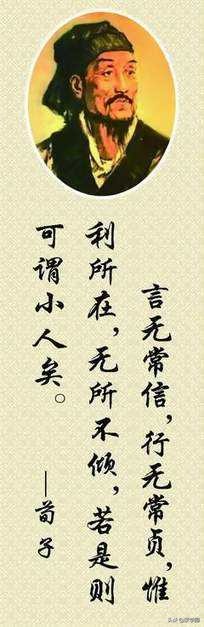 言无常信，行无常贞，惟
利所在，无所不倾，若是则
可谓小人矣。
—荀子